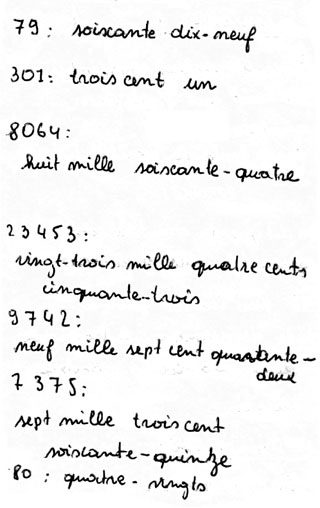 79 : soixante dix-neuf
301 : trois cent un
8064 :
huit mille soixante-quatre
23453 :
vingt-trois mille quatre cents
cinquante-trois
9742 :
neuf mille sept cent quarante-
deux
7375 :
sept mille trois cent
soixante-quinze
80 : quatre-vingts